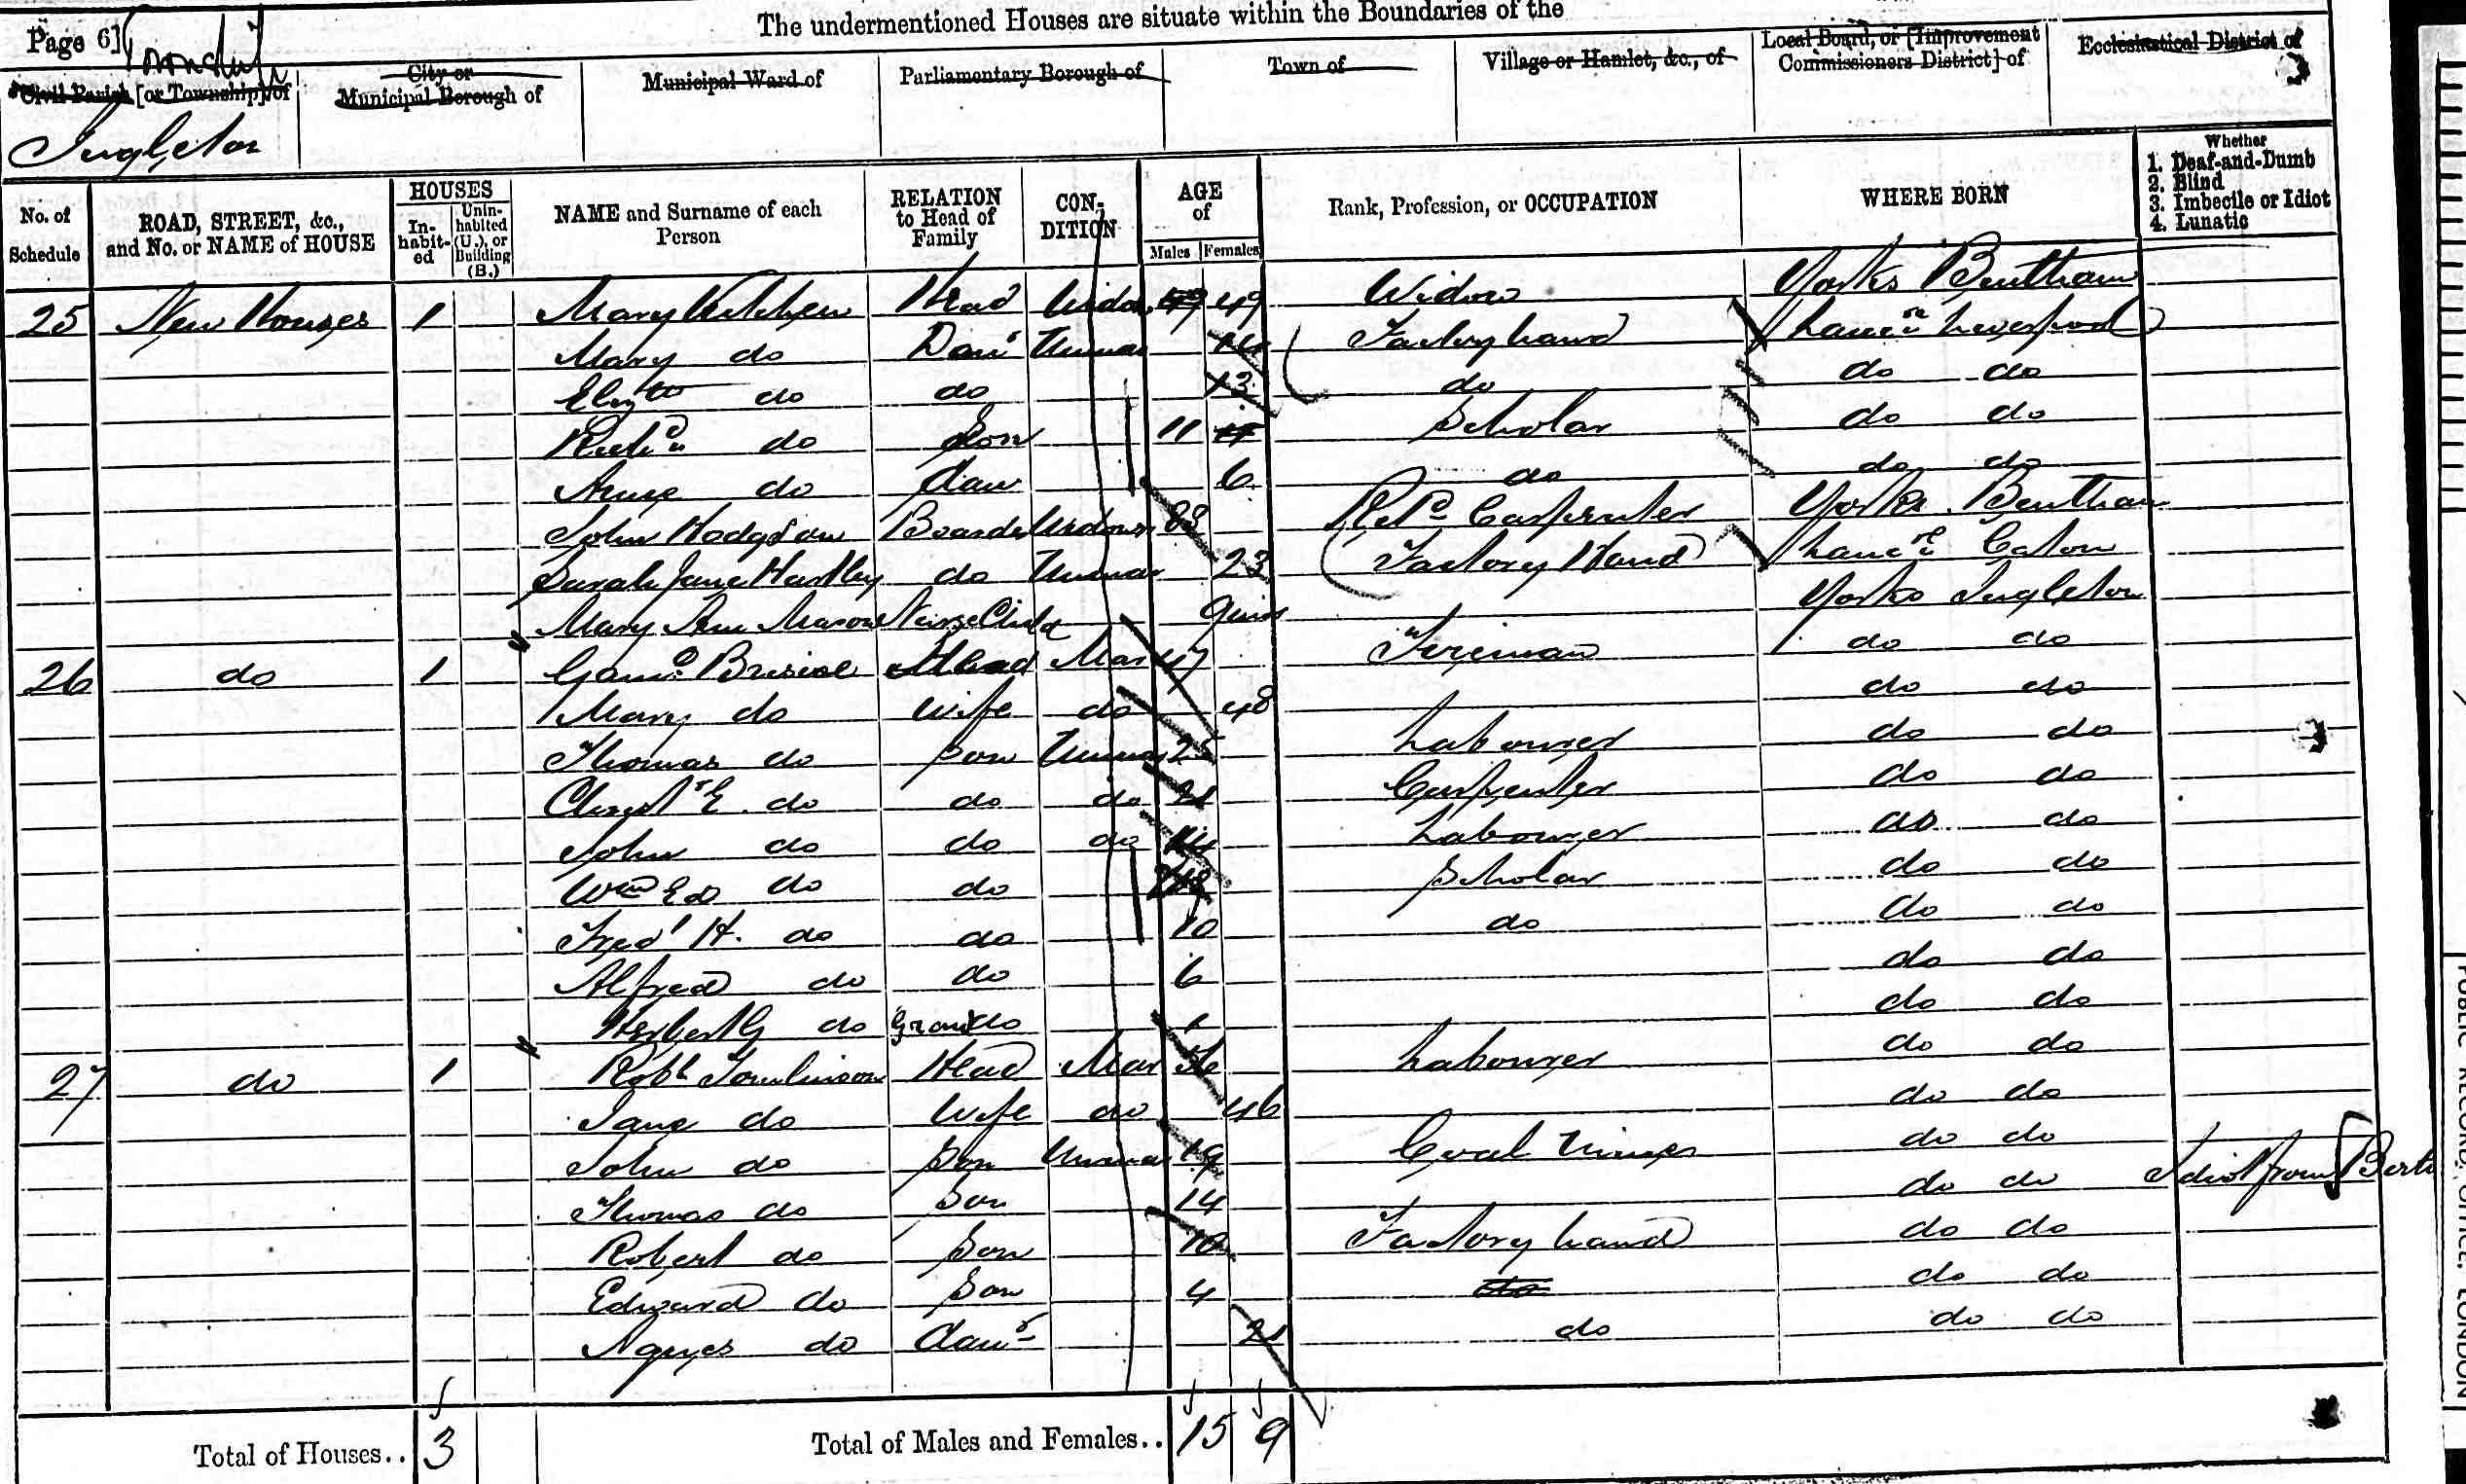 The undermentioned Houses are situate within the Boundaries of the
Page 6]
Township
Civil Parish [or Township] of
City or Municipal Borough of
Municipal Ward of
Parliamentary Borough of
Town of
Village or Hamlet, &c., of
Local Board, or [Improvement Commissioners District] of
Ecclesiastical District of
Ingleton
No. of Schedule
ROAD, STREET, &c., and No. or NAME of HOUSE
HOUSES
In-habit-ed
Unin-habited (U.), or Building (B.)
NAME and Surname of each Person
RELATION to Head of Family
CON-DITION
AGE of
Males Females
Rank, Profession, or OCCUPATION
WHERE BORN
Whether
1. Deaf-and-Dumb
2. Blind
3. Imbecile or Idiot
4. Lunatic
25 New Houses 1 Mary Kitchen Head Widow 49 49 Widow Yorks Bentham
Mary do Dau Unmar Factory hand Lancn Liverpool
Elizth do do 13 do do do
Richd do Son 11 11 Scholar do do
Anne do dau 6 do do do
John Hodgson Boarder Widower 83 Retd Carpenter Yorks Bentham
Sarah Jane Hartley do Unmar 23 Factory Hand Caton
Mary Ann Mason Nurse Child 9 Yorks Ingleton
26 do 1 Briscoe Head Mar 47 Fireman do do
Mary do Wife do 48 do do
Thomas do Son Unmar 25 Labourer do do
Christr E. do do do 21 Carpenter do do
John do do do 14 Labourer do do
Wm Ed do do Scholar do do
Fredk H. do do 10 do do do
Alfred do do 6 do do
Herbert G do Grand do 1 do do
27 do 1 Robt Tomlinson Head Mar Labourer do do
Jane do Wife do 46 do do
John do Son Unmar 19 Coal Miner do do
Thomas do Son 14 do do Idiot from Birth
Robert do Son 10 Factory hand do do
Edward do Son 4 do do do
Agnes do daur 21 do do do
Total of Houses.. 3
Total of Males and Females.. 15 9
PUBLIC RECORD OFFICE, LONDON